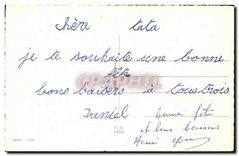 chère tata
je te souhaite une bonne
fête
bons baisers à tous trois
Daniel
bonne fête
et bons baisers
Henri